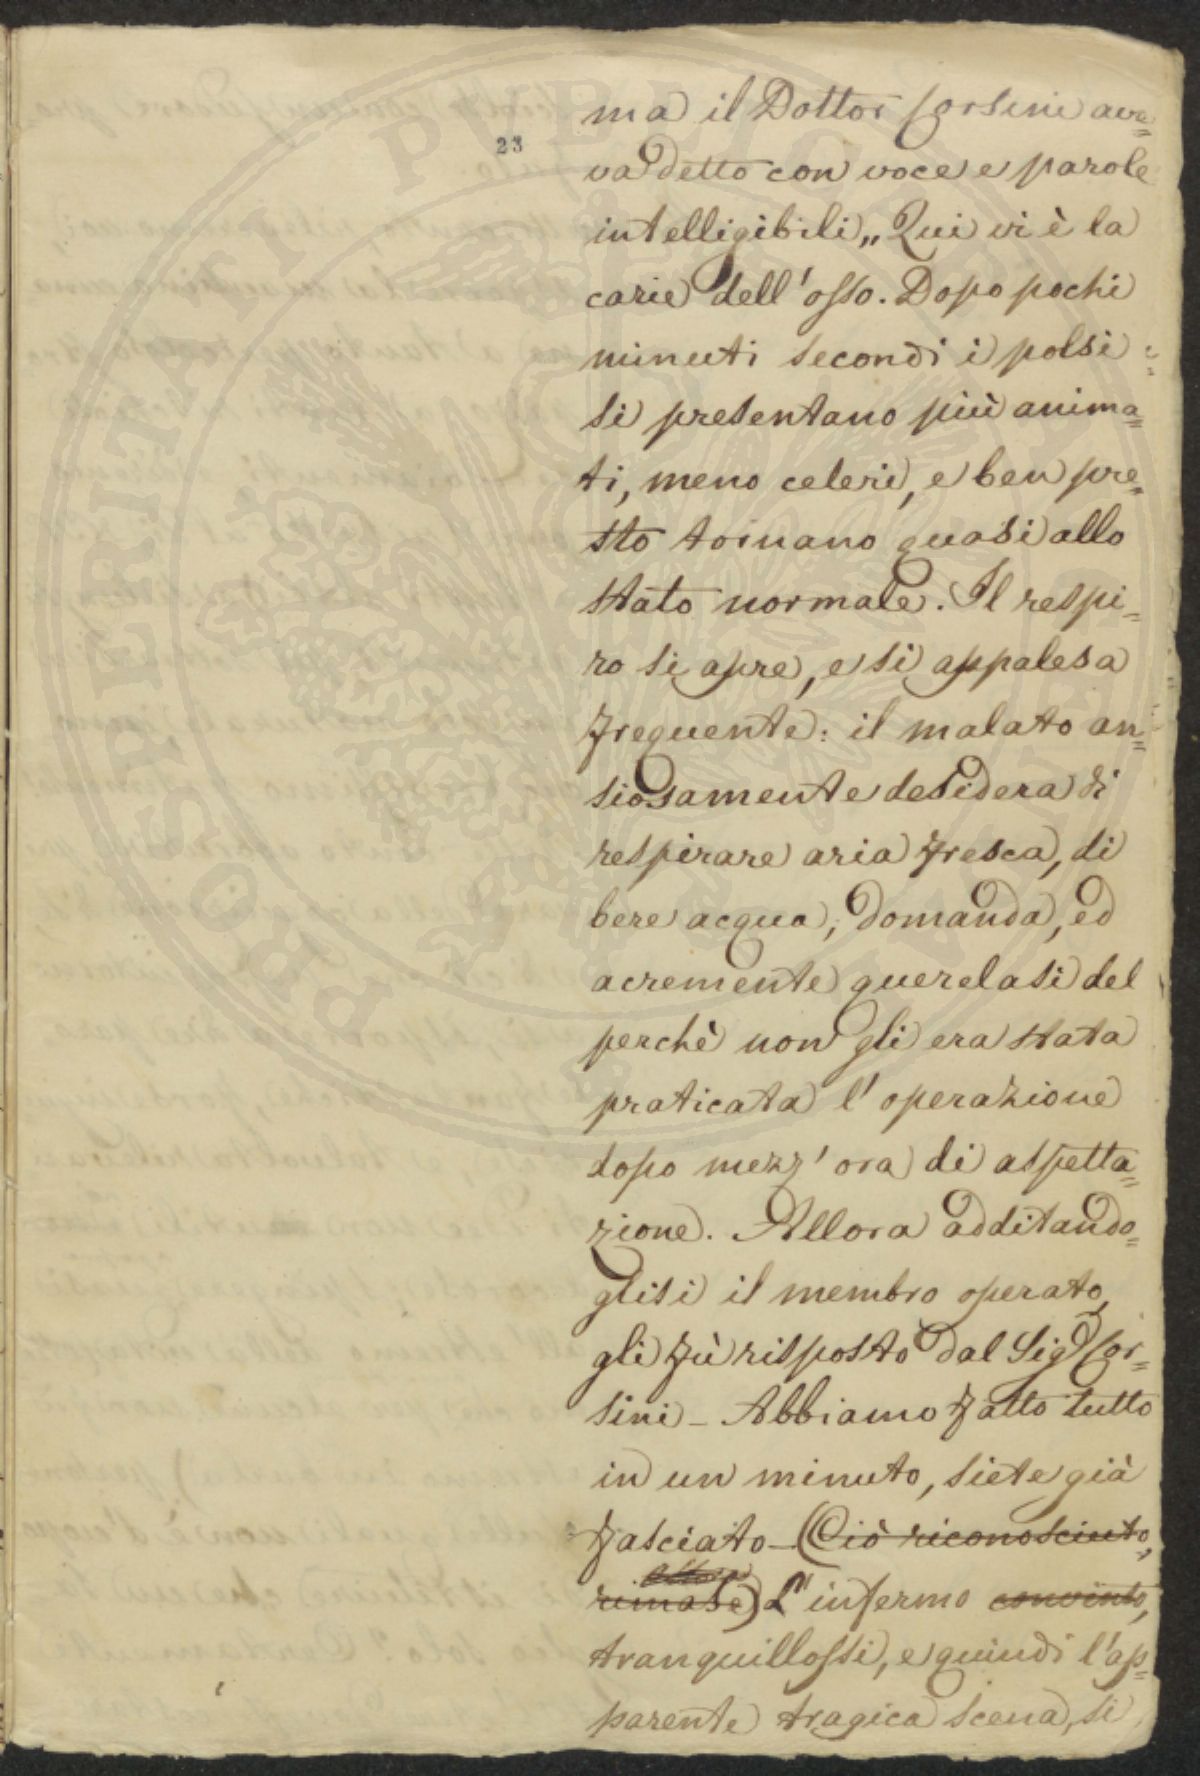 23
ma il Dottor Corsini ave=
va detto con voce e parole
intelligibili „ Qui vi è la
carie dell'osso. Dopo pochi
minuti secondi i polsi
si presentano più anima=
ti, meno celeri, e ben pre=
sto tornano quasi allo
stato normale. Il respi=
ro si apre, e si appalesa
frequente: il malato an=
siosamente desidera di
respirare aria fresca, di
bere acqua; domanda, ed
acremente querelasi del
perchè non gli era stata
praticata l'operazione
dopo mezz'ora di aspetta=
zione. Allora additando=
glisi il membro operato,
gli fù risposto dal Sigr Cor=
sini – Abbiamo fatto tutto
in un minuto, siete già
fasciato – (Ciò riconosciuto,
rimase) L'infermo convinto,
tranquillossi, e quindi l'ap=
parente tragica scena, si
PROSPERITATI PUBLICAE